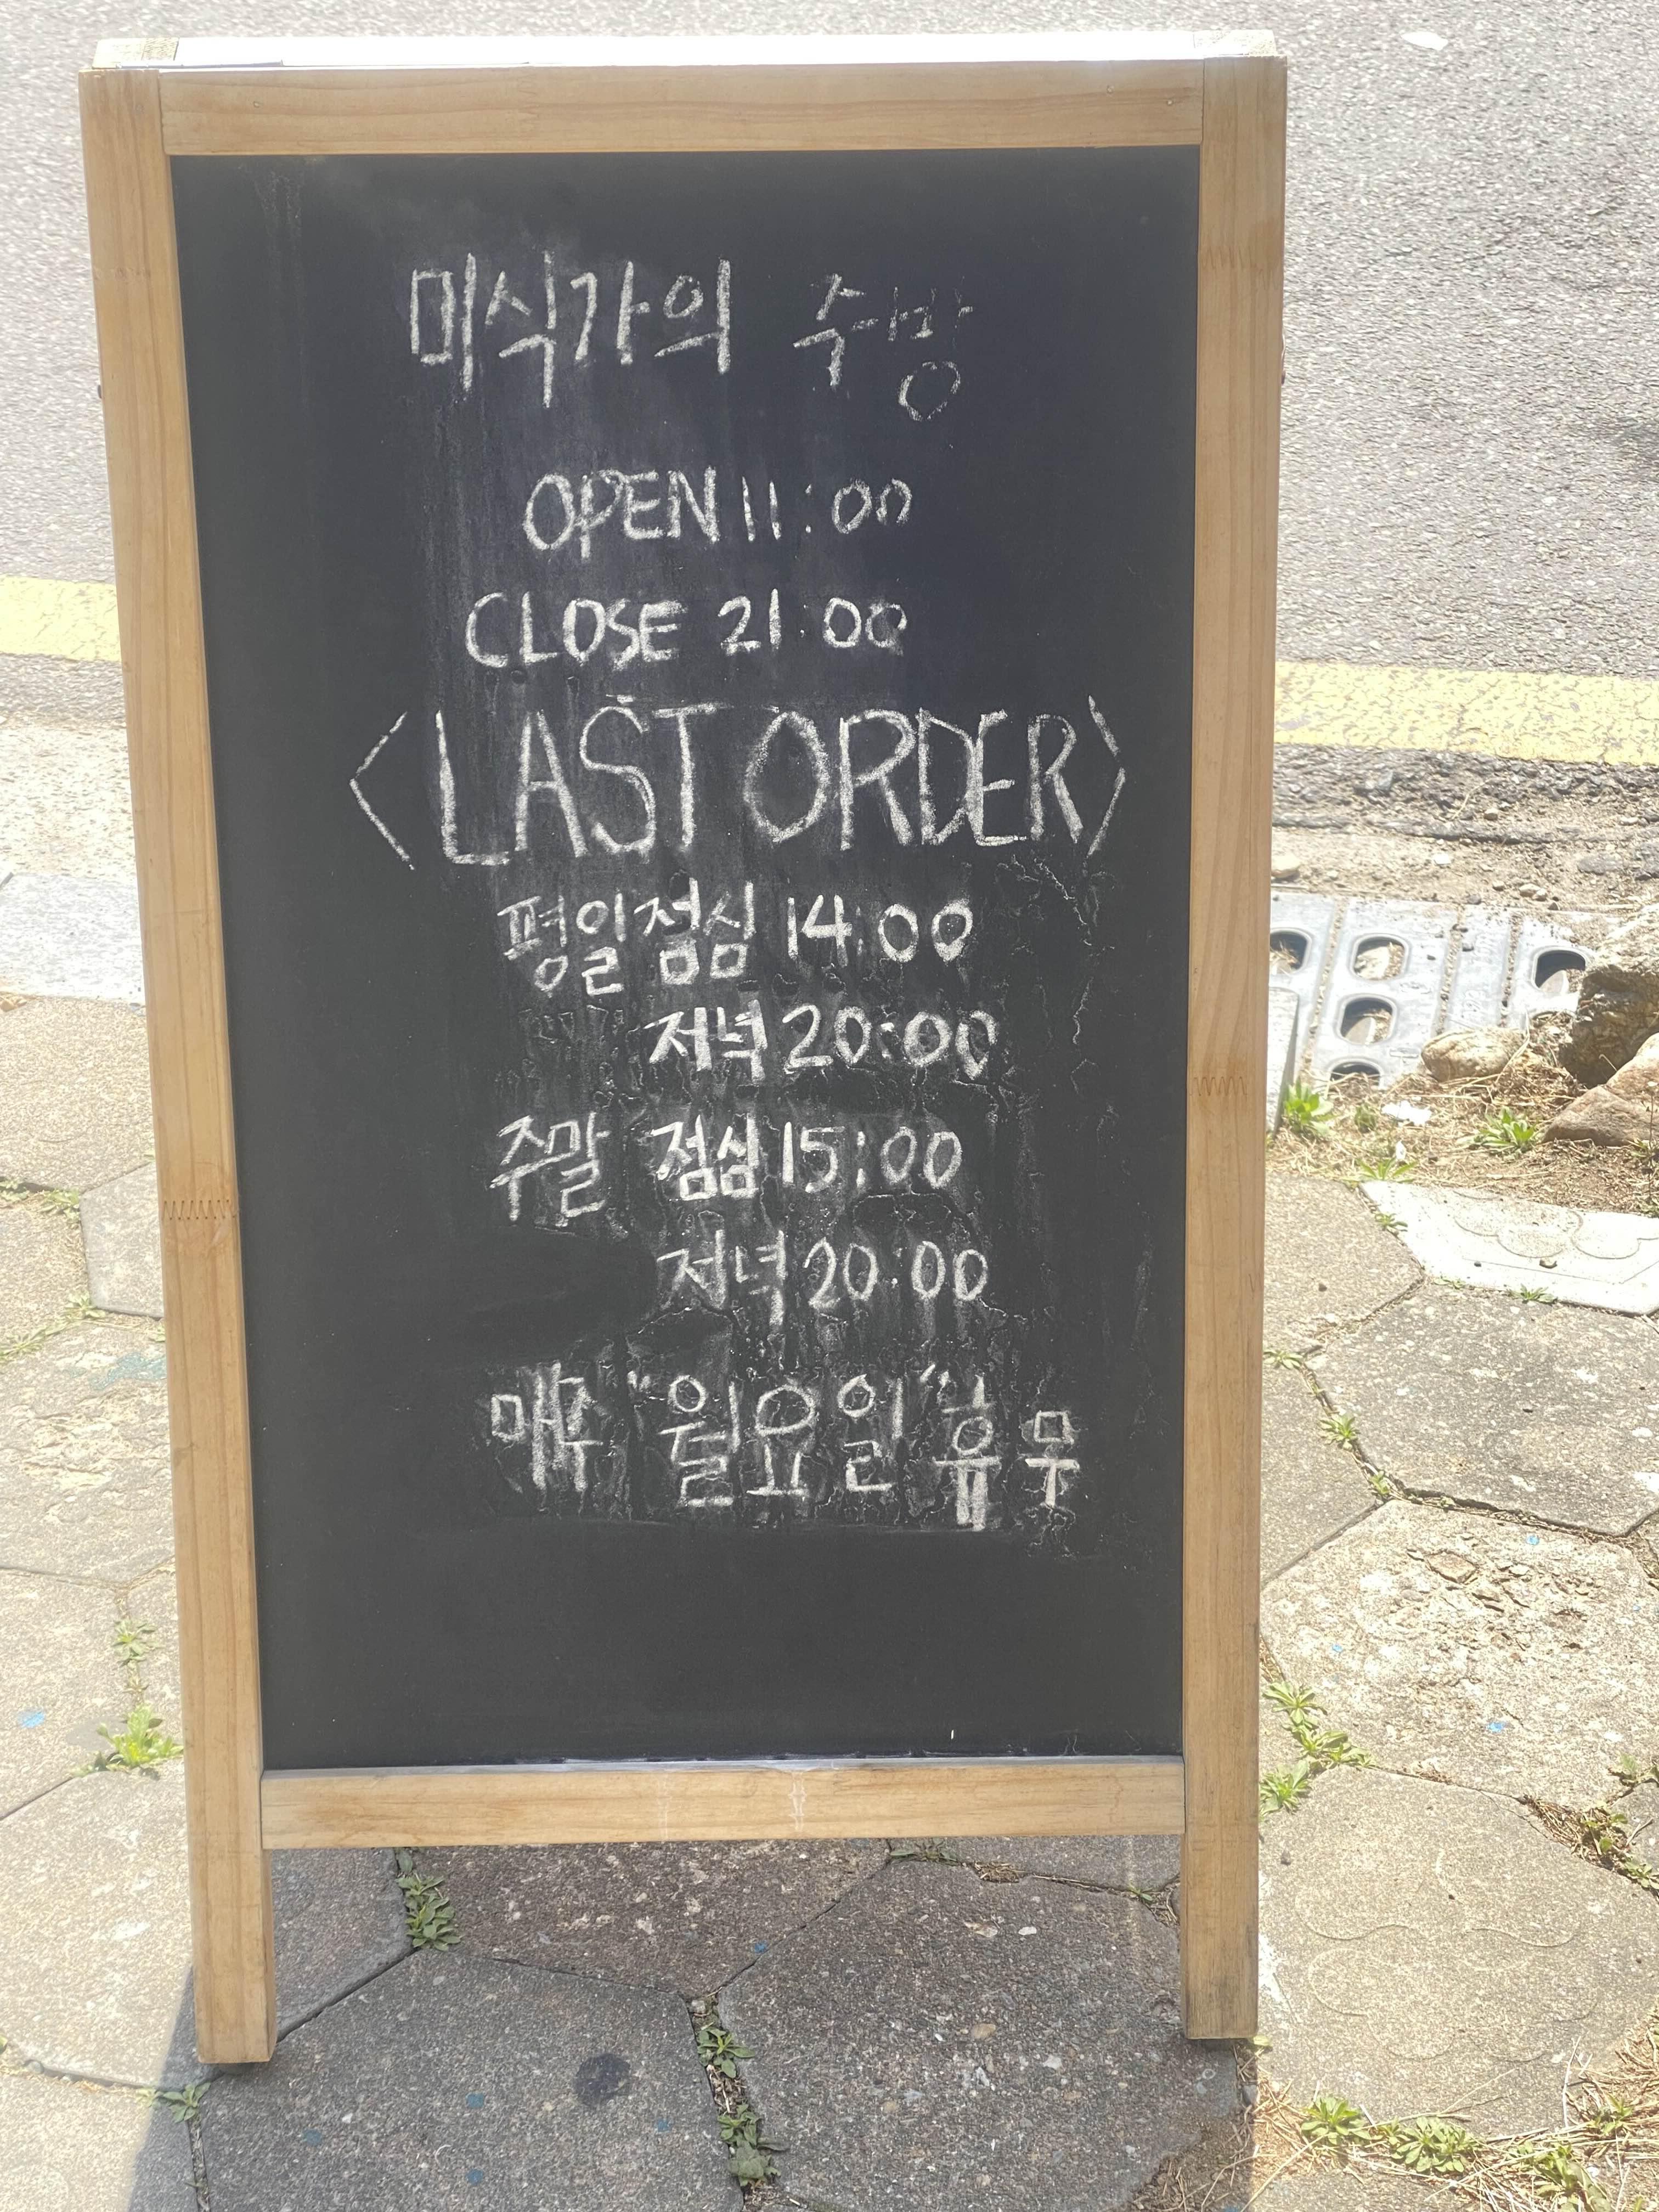 미식가의 주방
OPEN 11:00
CLOSE 21:00
<LAST ORDER>
평일 점심 14:00
저녁 20:00
주말 점심 15:00
저녁 20:00
매주 "월요일" 휴무